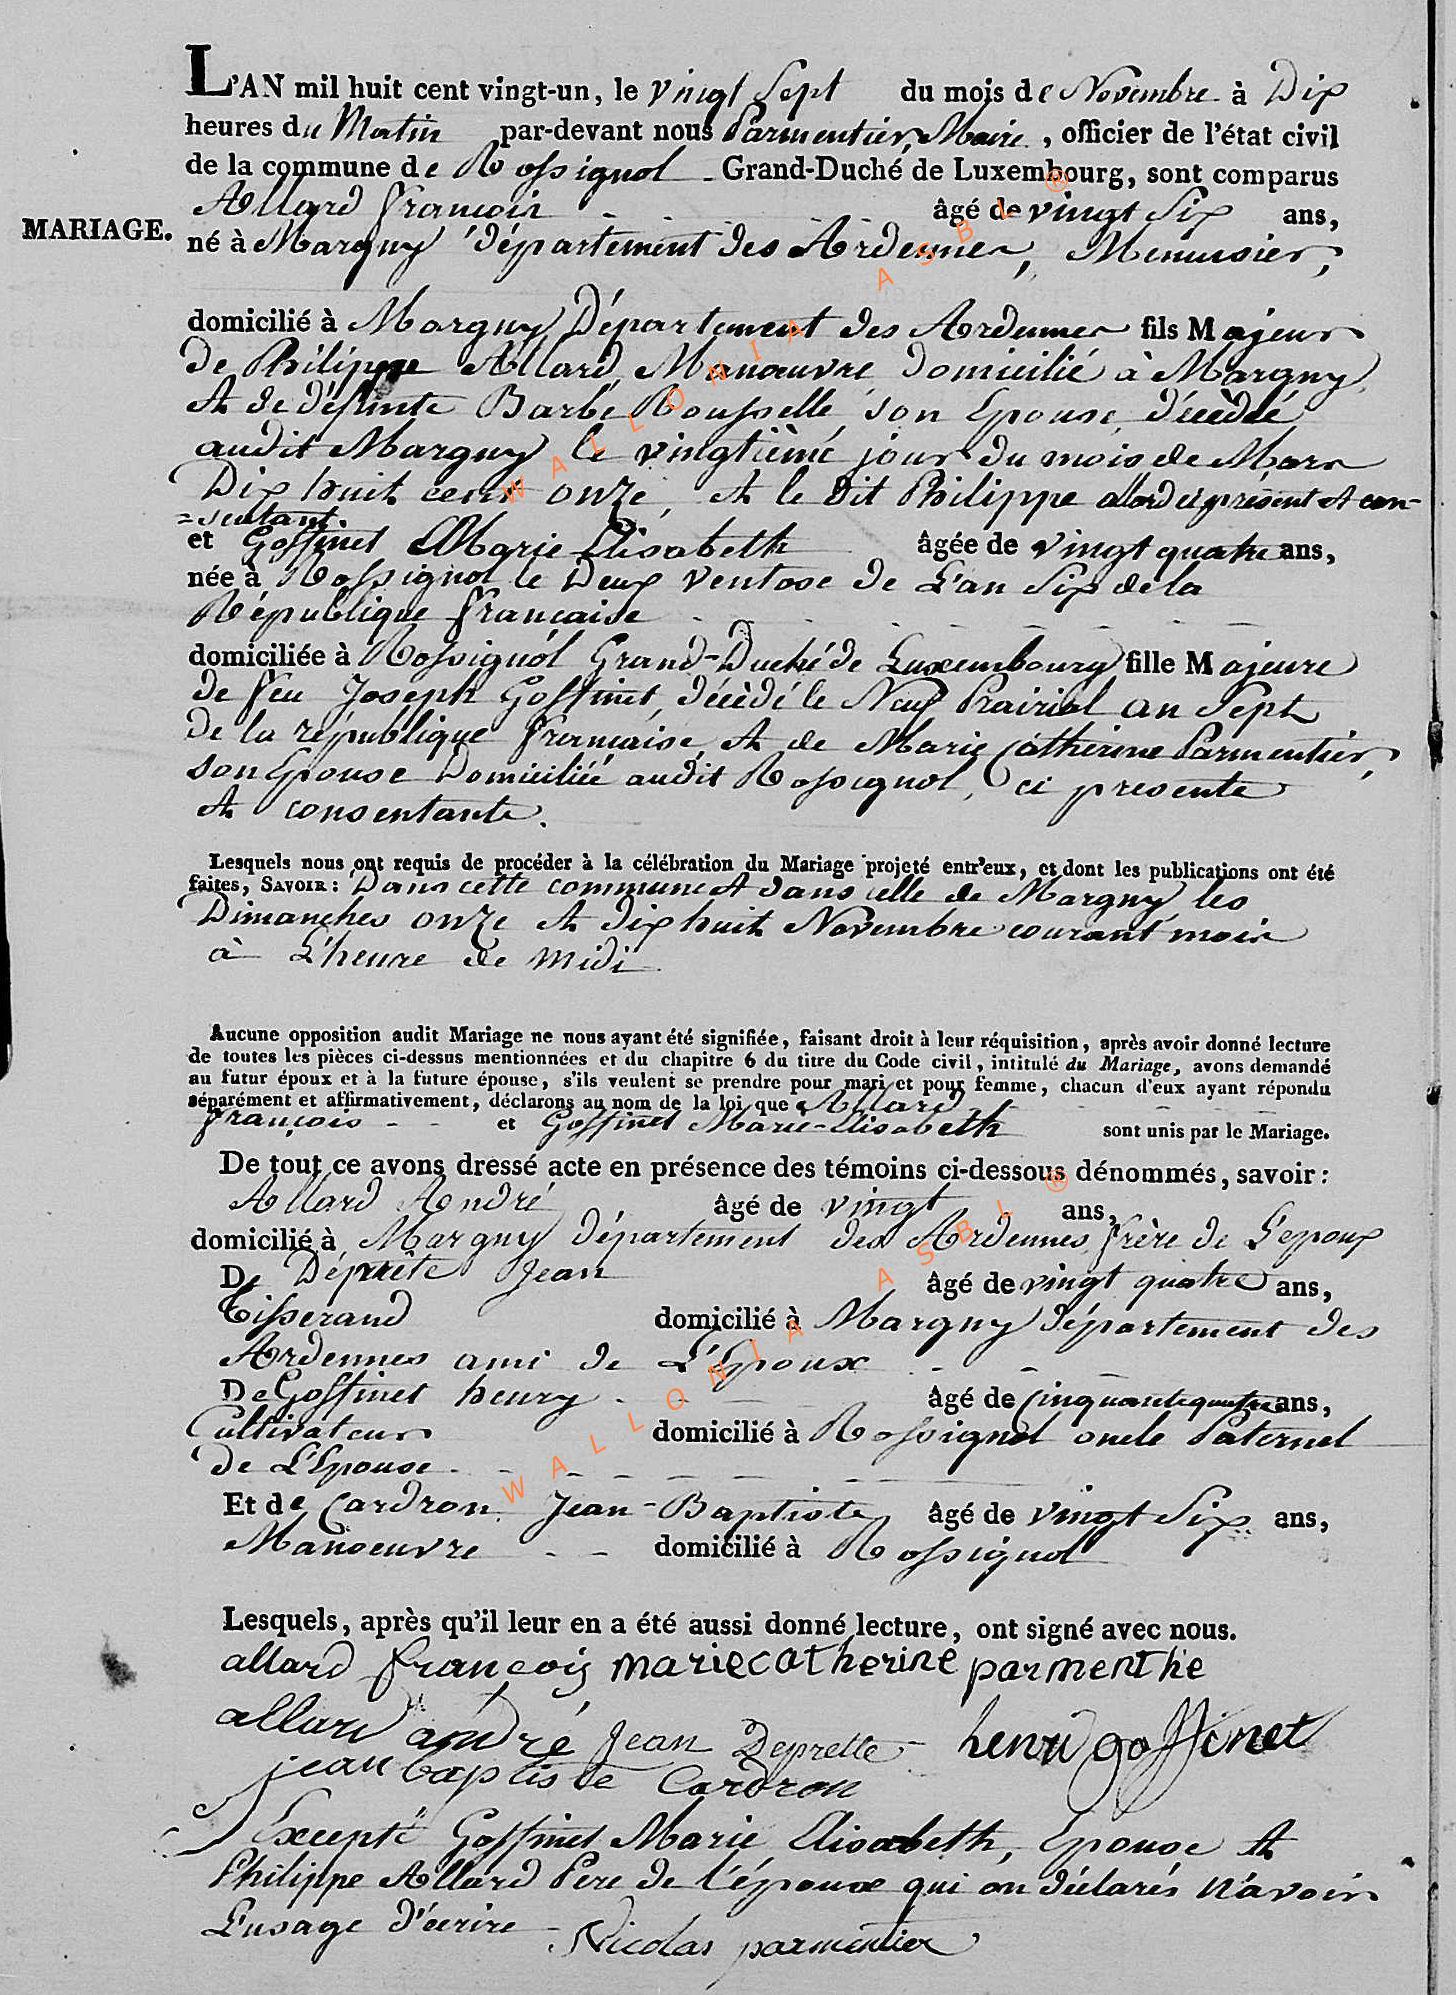 L'AN mil huit cent vingt-un, le vingt Sept du mois de Novembre à Dix
heures du Matin par-devant nous Parmentier, Maire, officier de l'état civil
de la commune de Rossignol Grand-Duché de Luxembourg, sont comparus
Allard François âgé de vingt Six ans,
MARIAGE.
né à Margny département des Ardennes, Menuisier,
domicilié à Margny Département des Ardennes fils Majeur
de Philippe Allard, Manœuvre domicilié à Margny
et de défunte Barbe Rousselle, son Epouse, décédée
audit Margny le vingtième jour du mois de Mars
Dix huit cent onze, et le dit Philippe allard ci présent et con-
=sentant.
et Goffinet Marie Elisabeth âgée de vingt quatre ans,
née à Rossignol le Deux ventose de L'an Six de la
République française
domiciliée à Rossignol Grand-Duché de Luxembourg fille Majeure
de feu Joseph Goffinet, décédé le Neuf Prairial an Sept
de la république française et de Marie Catherine Parmentier,
son Epouse Domiciliée audit Rossignol, ci presente
et consentante.
Lesquels nous ont requis de procéder à la célébration du Mariage projeté entr'eux, et dont les publications ont été
faites, SAVOIR: Dans cette commune et dans celle de Margny les
Dimanches onze et dix huit Novembre courant mois
à L'heure de midi
Aucune opposition audit Mariage ne nous ayant été signifiée, faisant droit à leur réquisition, après avoir donné lecture
de toutes les pièces ci-dessus mentionnées et du chapitre 6 du titre du Code civil, intitulé du Mariage, avons demandé
au futur époux et à la future épouse, s'ils veulent se prendre pour mari et pour femme, chacun d'eux ayant répondu
séparément et affirmativement, déclarons au nom de la loi que Allard
françois et Goffinet Marie-Elisabeth sont unis par le Mariage.
De tout ce avons dressé acte en présence des témoins ci-dessous dénommés, savoir:
Allard André âgé de vingt ans,
domicilié à Margny département des Ardennes, frère de L'epoux
De Deprête Jean âgé de vingt quatre ans,
Tisserand domicilié à Margny département des
Ardennes ami de L'Epoux
De Goffinet henry âgé de Cinquante quatre ans,
Cultivateur domicilié à Rossignol oncle Paternel
de L'Epouse
Et de Cardron Jean-Baptiste âgé de vingt Six ans,
Manoeuvre domicilié à Rossignol
Lesquels, après qu'il leur en a été aussi donné lecture, ont signé avec nous.
allard françois marie catherine parmenthe
allard andré Jean Deprette henri goffinet
jean baptiste Cardron
Excepté Goffinet Marie Elisabeth, Epouse et
Philippe Allard Pere de l'époux qui on déclarés n'avoir
L'usage d'écrire Nicolas parmentier
WALLONIA ASBL ®
WALLONIA ASBL ®